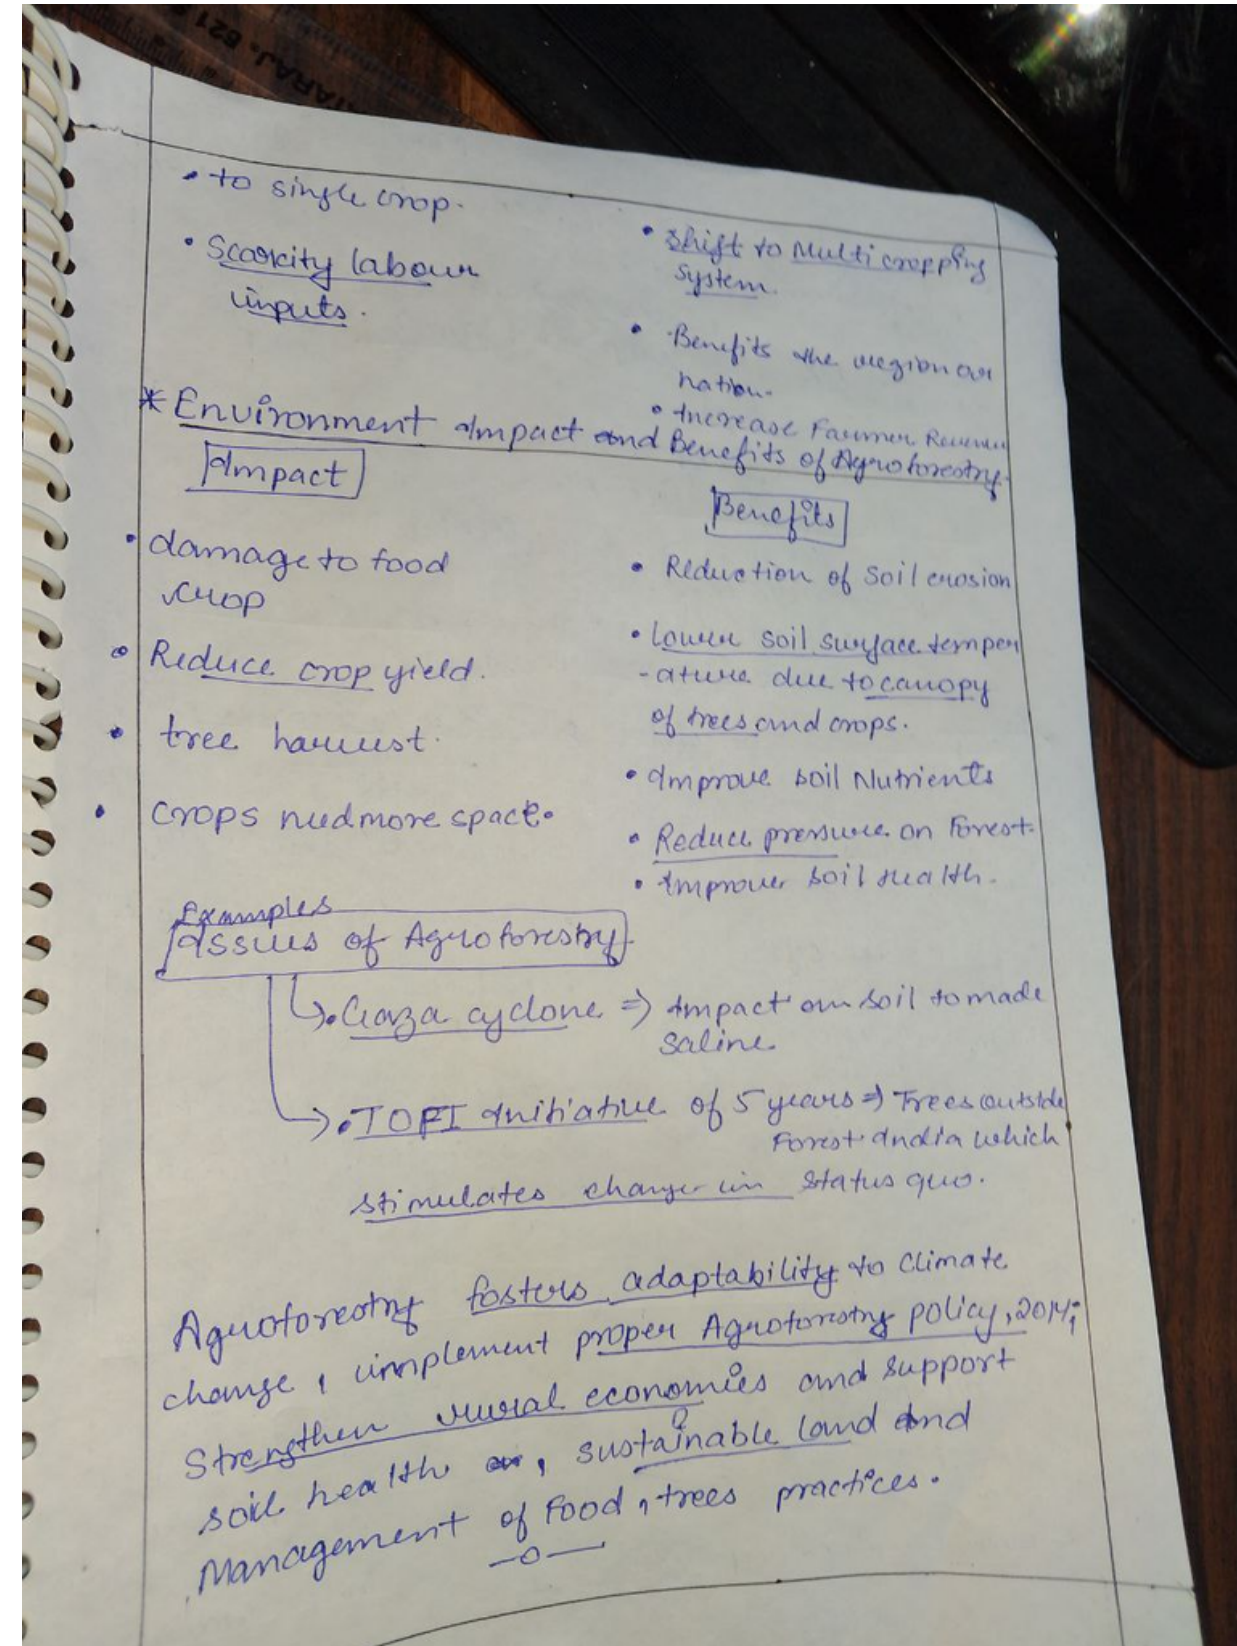 • to single crop.
• Scarcity labour
inputs.
• Shift to Multi cropping
system.
• Benefits the region or
nation.
• Increase Farmer Revenue
* Environment Impact and Benefits of Agroforestry.
Impact
• damage to food
crop
• Reduce crop yield.
• tree harvest.
• Crops need more space.
Benefits
• Reduction of soil erosion
• Lower soil surface temper
-ature due to canopy
of trees and crops.
• Improve soil Nutrients
• Reduce pressure on Forest.
• Improver soil Health.
Examples
Issues of Agroforestry
• Gaza cyclone ⇒ Impact on soil to made
saline
• TOFI Initiative of 5 years ⇒ Trees outside
Forest India which
stimulates change in status quo.
Agroforestry fosters adaptability to climate
change, implement proper Agroforestry policy, 2014;
Strengthen rural economies and support
soil health , sustainable land and
Management of Food, trees practices.